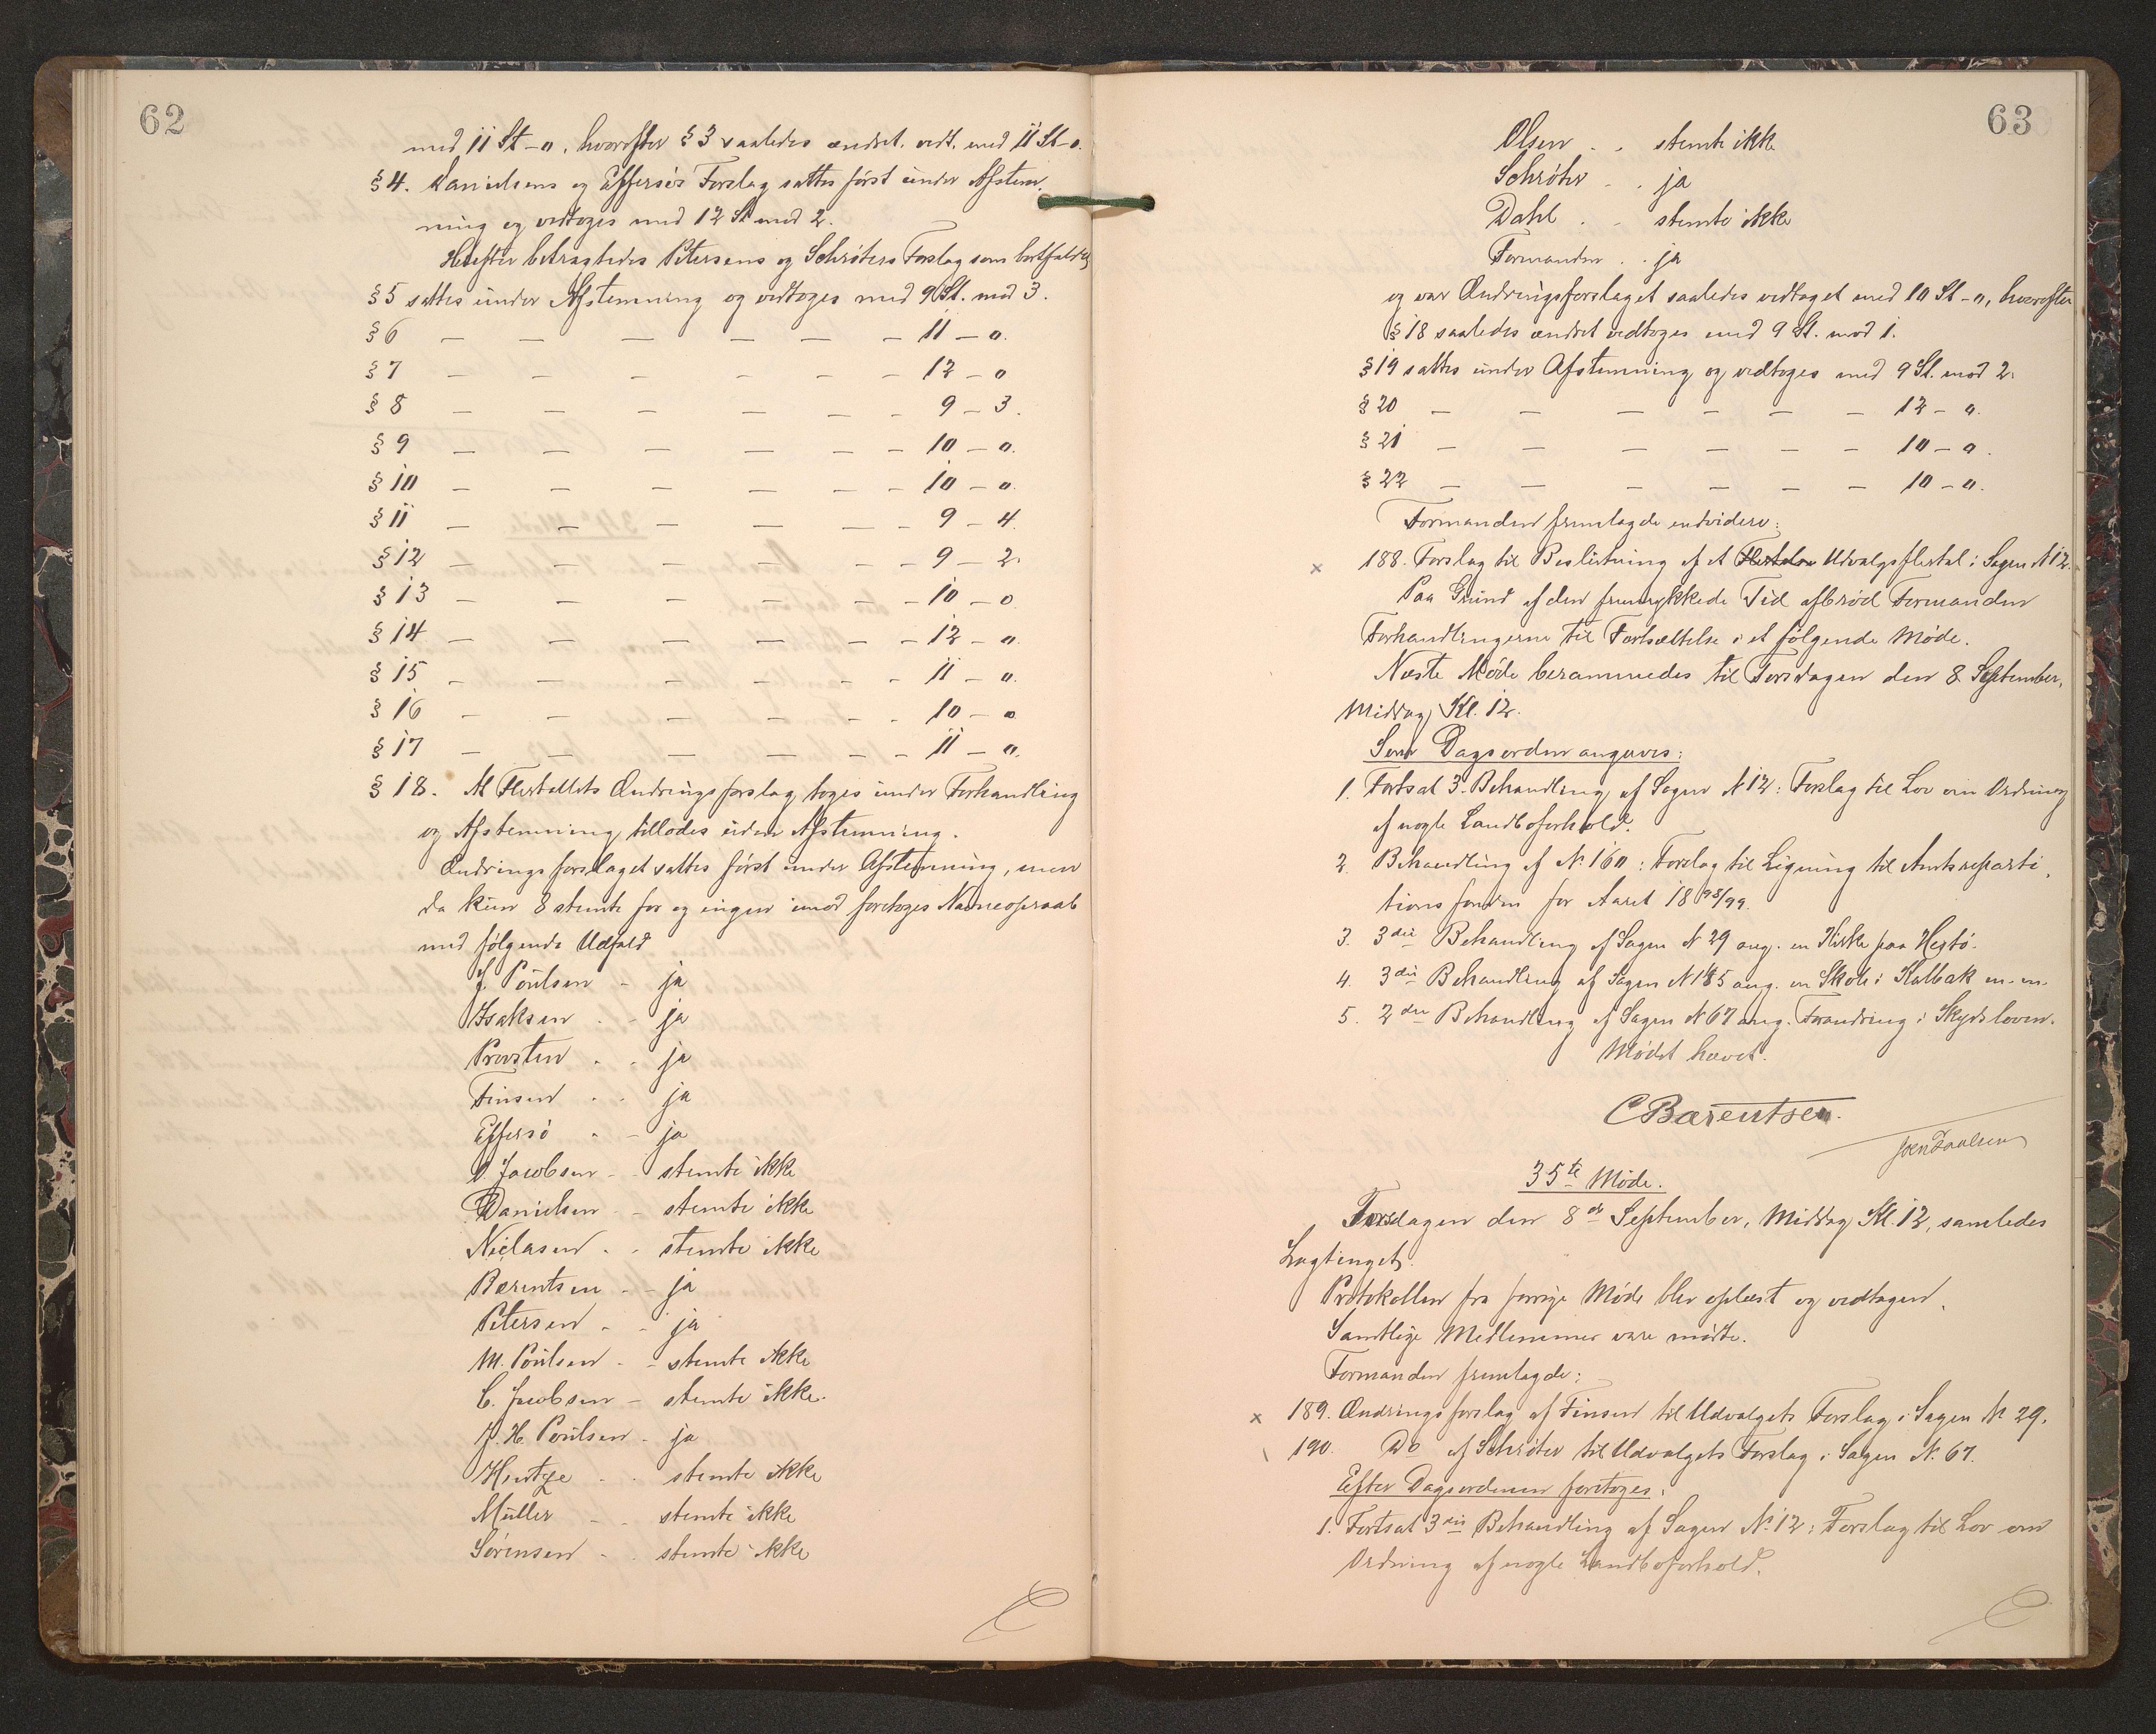 62
med 11 St - 0, hvorefter § 3 saaledes ændret, vedt. med 11 St - 0.
§ 4. Danielsens og Effersøs Forslag sattes først under Afstem-
ning og vedtoges med 12 St mod 2.
Herefter betragtedes Petersens og Schrøters Forslag som bortfaldet
§ 5 sattes under Afstemning og vedtoges med 9 St. mod 3.
§ 6 — — — — — — 11 — 0.
§ 7 — — — — — — 12 — 0
§ 8 — — — — — — 9 — 3.
§ 9 — — — — — — 10 — 0.
§ 10 — — — — — — 10 — 0.
§ 11 — — — — — — 9 — 4.
§ 12 — — — — — — 9 — 2.
§ 13 — — — — — — 10 — 0
§ 14 — — — — — — 12 — 0.
§ 15 — — — — — — 11 — 0.
§ 16 — — — — — — 10 — 0
§ 17 — — — — — — 11 — 0.
§ 18. At Flertallets Ændringsforslag toges under Forhandling
og Afstemning tillodes uden Afstemning.
Ændringsforslaget sattes først under Afstemning, men
da kun 8 stemte for og ingen imod foretoges Navneopraab
med følgende Udfald
J. Poulsen - ja
Isaksen - - ja
Provsten - - ja
Finsen - - ja
Effersø - - ja
O. Jacobsen - - stemte ikke
Danielsen - - stemte ikke
Niclasen - - stemte ikke
Bærentsen - - ja
Petersen - - ja
M. Poulsen - - stemte ikke
C. Jacobsen - stemte ikke.
J. H. Poulsen - ja
Hentze - - stemte ikke
Müller - - stemte ikke
Sørensen - - stemte ikke
63
Olsen - - stemte ikke
Schrøter - - ja
Dahl - - stemte ikke
Formanden - - ja
og var Ændringsforslaget saaledes vedtaget med 10 St - 0, hvorefter
§ 18 saaledes ændret vedtoges med 9 St. mod 1.
§ 19 sattes under Afstemning og vedtoges med 9 St. mod 2.
§ 20 — — — — — — 12 — 0.
§ 21 — — — — — — 10 — 0.
§ 22 — — — — — — 10 — 0.
Formanden fremlagde endvidere:
x 188. Forslag til Beslutning af et Udvalgsflertal i Sagen N 12.
Paa Grund af den fremrykkede Tid afbrød Formanden
Forhandlingerne til Fortsættelse i et følgende Møde.
Næste Møde berammedes til Torsdagen den 8 September,
Middag Kl. 12.
Som Dagsorden angaves:
1. Fortsat 3. Behandling af Sagen N 12: Forslag til Lov om Ordning
af nogle Landboforhold.
2. Behandling af N. 160: Forslag til Ligning til Amtsreparti-
tionsfonden for Aaret 1898/99.
3. 3die Behandling af Sagen N 29 ang. en Kirke paa Hestø.
4. 3die Behandling af Sagen N 185 ang. en Skole i Kalbak m.m.
5. 2den Behandling af Sagen N 67 ang. Forandring i Skydsloven.
Mødet hævet.
C Bærentsen.
35te Møde.
Torsdagen den 8de September, Middag Kl. 12, samledes
Lagtinget.
Protokollen fra forrige Møde blev oplæst og vedtagen.
Samtlige Medlemmer vare mødte.
Formanden fremlagde:
x 189. Ændringsforslag af Finsen til Udvalgets Forslag i Sagen N 29.
190. Do af Schrøter til Udvalgets Forslag i Sagen N. 67.
Efter Dagsordenen foretoges:
1. Fortsat 3die Behandling af Sagen N. 12: Forslag til Lov om
Ordning af nogle Landboforhold.